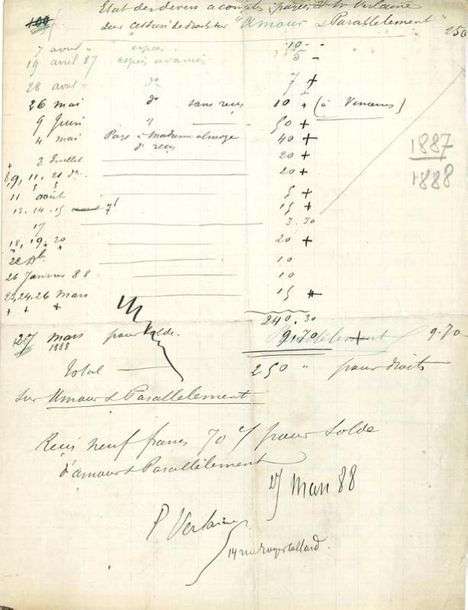 Etat des divers acomptes payés à Mr Verlaine
sur cession de droits "Amour & Parallèlement" 250
7 avril espèces 10 -
19 avril 87 espèces avancées 5 -
28 avril do 7 +
26 mai do sans reçu 10 + (à Vincennes)
9 Juin " 50 +
4 mai Payé à Madame 40 +
do reçu
2 Juillet 20 +
8, 9, 11, 21 do 20 +
11 août 5 +
12 - 14 - 15 15 +
17 3.30
18, 19, 20 20 +
10
26 Janvier 88 10
22, 24, 26 Mars 15 +
1887
1888
240.30
27 mars pour solde. 9.70 9.70
1888
Total 250 " pour droits
sur Amour & Parallèlement
Reçu neuf francs 70 cs pour solde
d'amour & Parallèlement
27 Mars 88
P. Verlaine
14 rue Royer Collard.